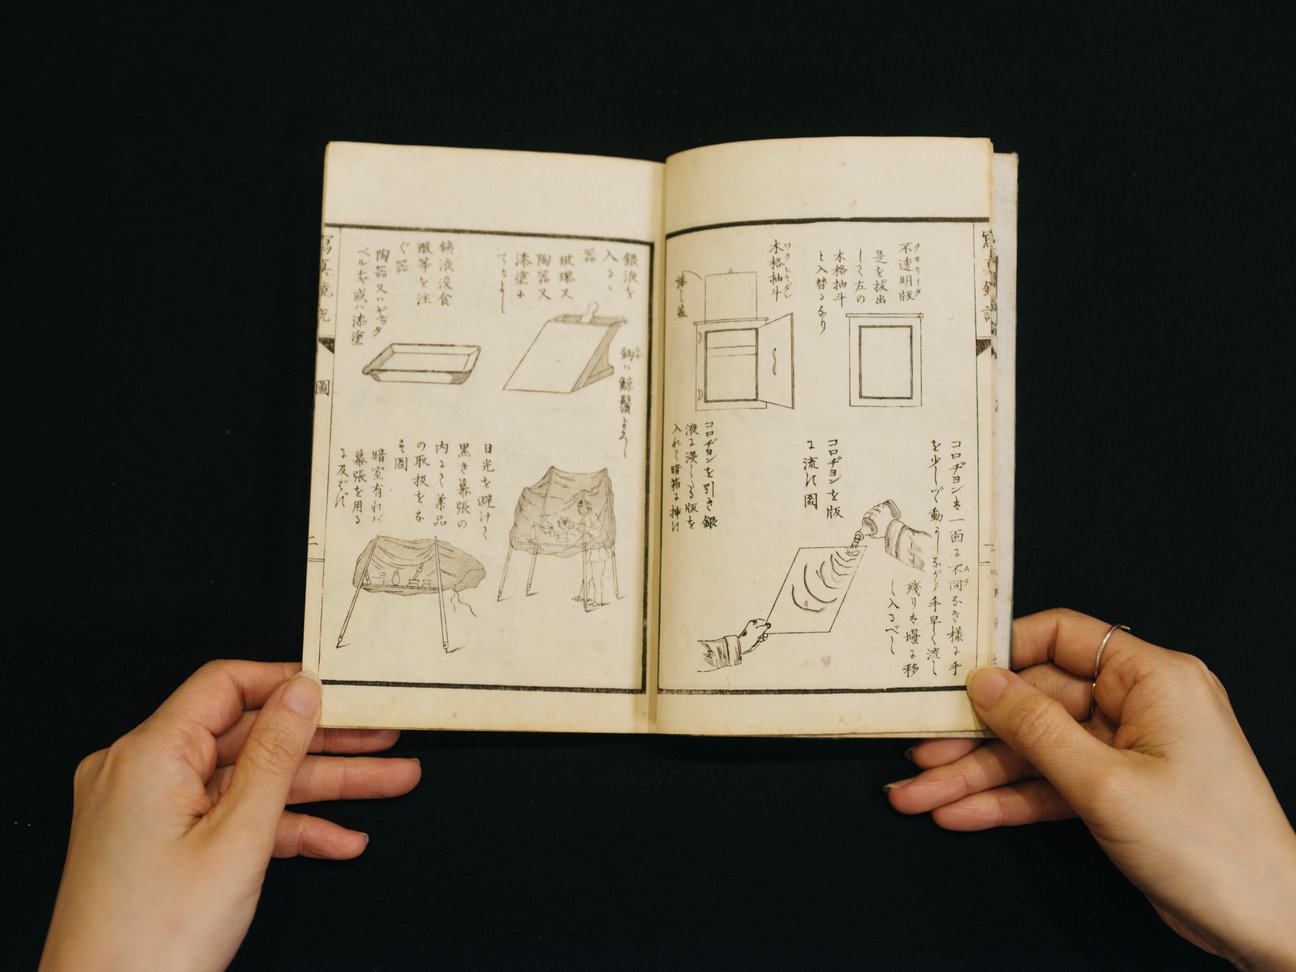 クモリイタ
不透明版
是を拔出
して左の
木格抽斗
と入替るなり
ワクヒキダシ
木格抽斗
コロヂヨンを一面に不同なき樣に手
ムラ
を少しづゝ動かしながら手早く流し
残りを壜に移
し入るべし
コロヂヨンを版
に流す圖
コロヂヨンを引き銀
液に浸したる版を
入れて暗箱に挿す
銀液を
入るゝ
器
玻璃又
陶器又
漆塗に
てもよし
鈎ハ鯨鬚よろし
銕液没食
酸等を注
ぐ器
陶器又ハ
ベルチャ或ハ漆塗
日光を避けて
黒き幕張の
内にて薬品
の取扱をな
す圖
暗室有れバ
幕張を用る
に及ばず
圖
二